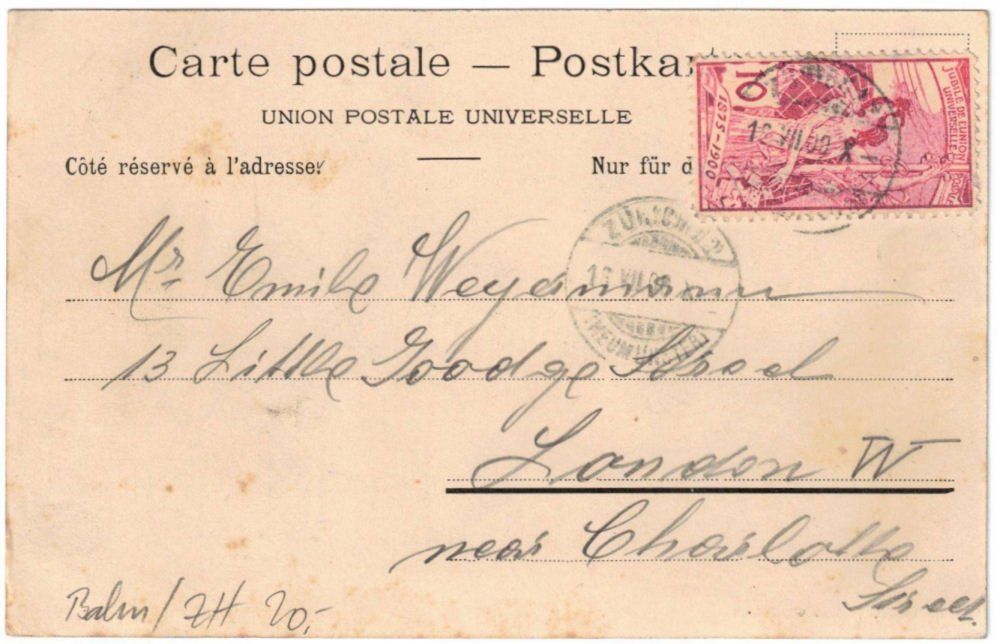 Carte postale — Postkar
UNION POSTALE UNIVERSELLE
Côté réservé à l'adresse.
Nur für d
10
1875-1900
JUBILÉ DE L'UNION
UNIVERSELLE
VII.00
X
ZÜRICH
VII.00
(NEUMÜNSTER)
Mr Emile Weyermann
13 Little Goodge Street
London W
near Charlotte
Street.
Balm / ZH 20,-